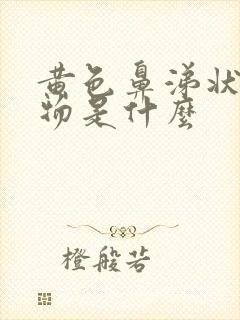 黄色鼻涕状
物是什麼
橙般若